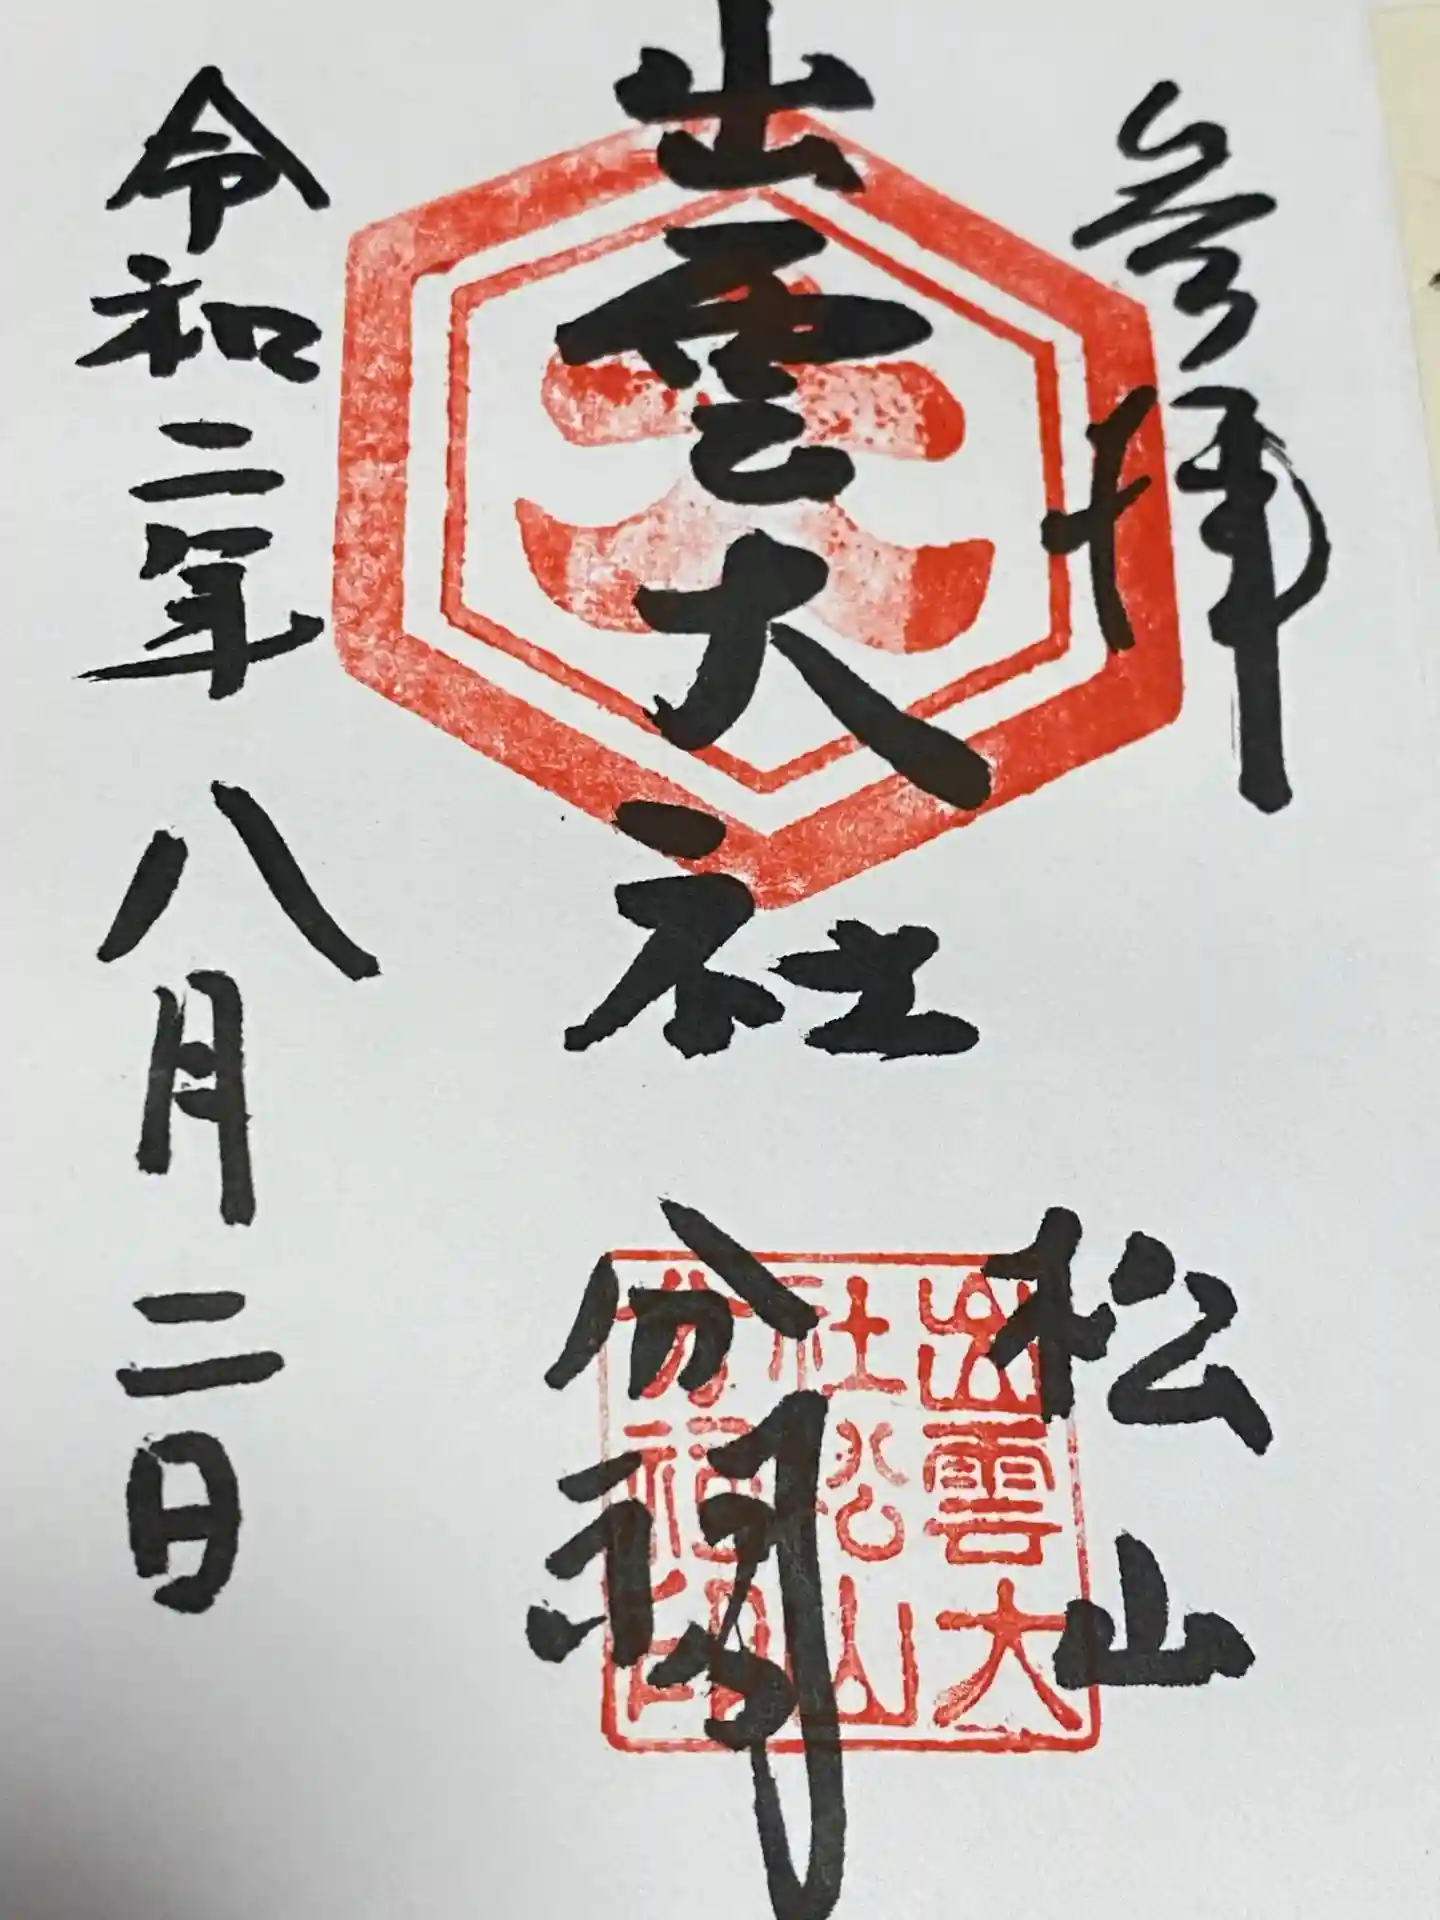 參拝
出雲大社
松山
分祠
令和二年八月二日
大
出雲大
社松山
分祠印